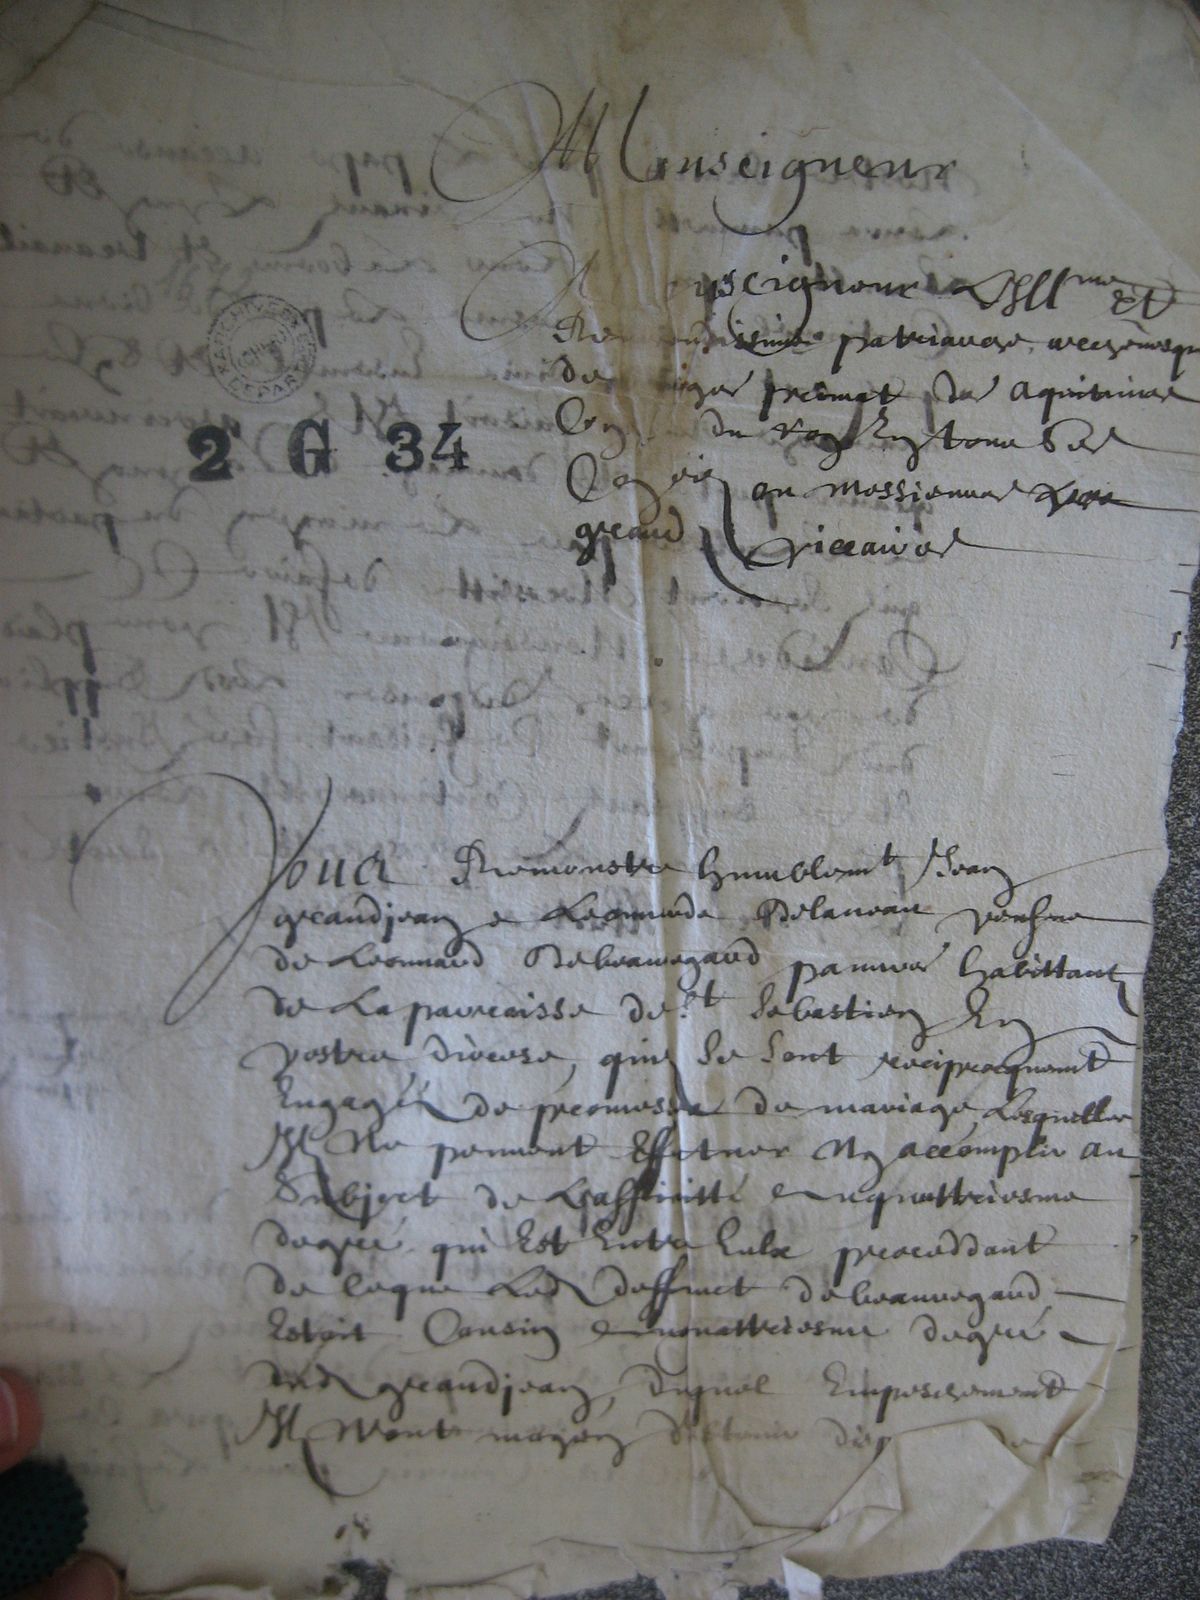 Monseigneur
Monseigneur Lillme et
Reverendissime patriarche archevesque
de primat de aquitaine
du roy en tous ses
ou messieurs
grand viccaires
ARCHIVES
2 G 34
Vous Remonstre humblemt Jean
grandjean e Leonarde Delaneau veufve
de Leonnard Debeauregaud pauvres habittant
de La parroisse de st Sebastien En
vostre diocese, quy se sont reciprocquemt
Engagé de promesse de mariage, Lesquelles
Il Ne peuvent Effetuer Ny accomplir au
Subject de Laffinitté enquattriesme
degré qui Est Entre Eulx proceddant
de ceque Led deffunct debeauregaud
Estoit Cousin enquattriesme degré
dud grandjean, duquel Empeschement
Il Nont moyen dobtenir